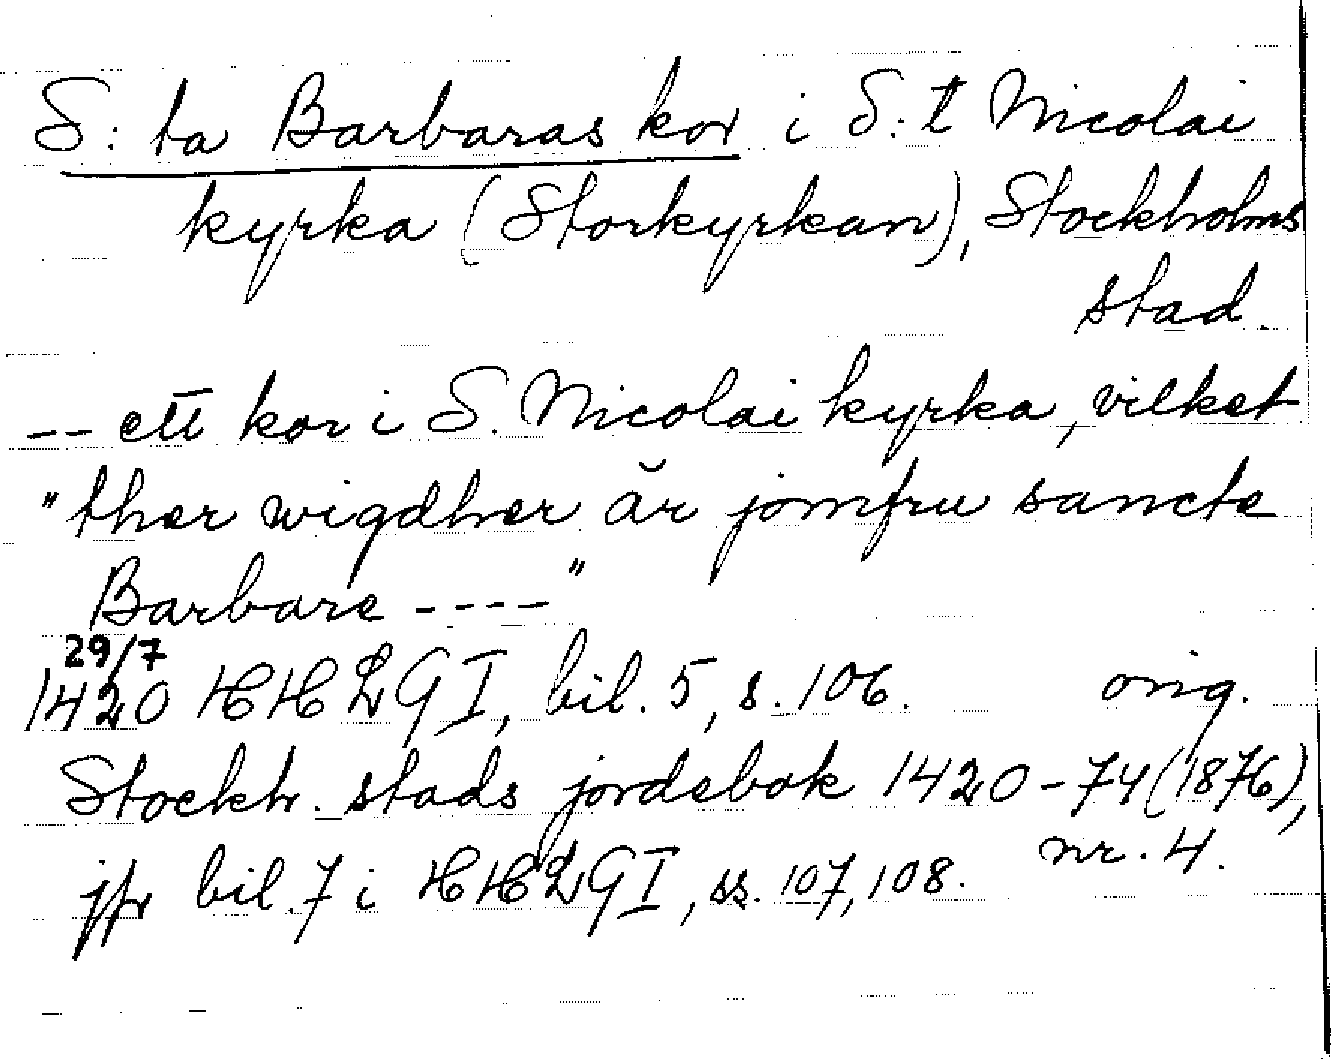 S:ta Barbaras kor i S:t Nicolai
kyrka (Storkyrkan), Stockholms
stad.
-- ett kor i S. Nicolai kyrka, vilket
"ther wigdher är jomfru sancte
Barbare ----"
29/7
1420 HHLG I, bil. 5, s. 106. orig.
Stockh. stads jordebok 1420-74 (1876),
nr. 4.
jfr bil. 7 i HHLG I, ss. 107, 108.